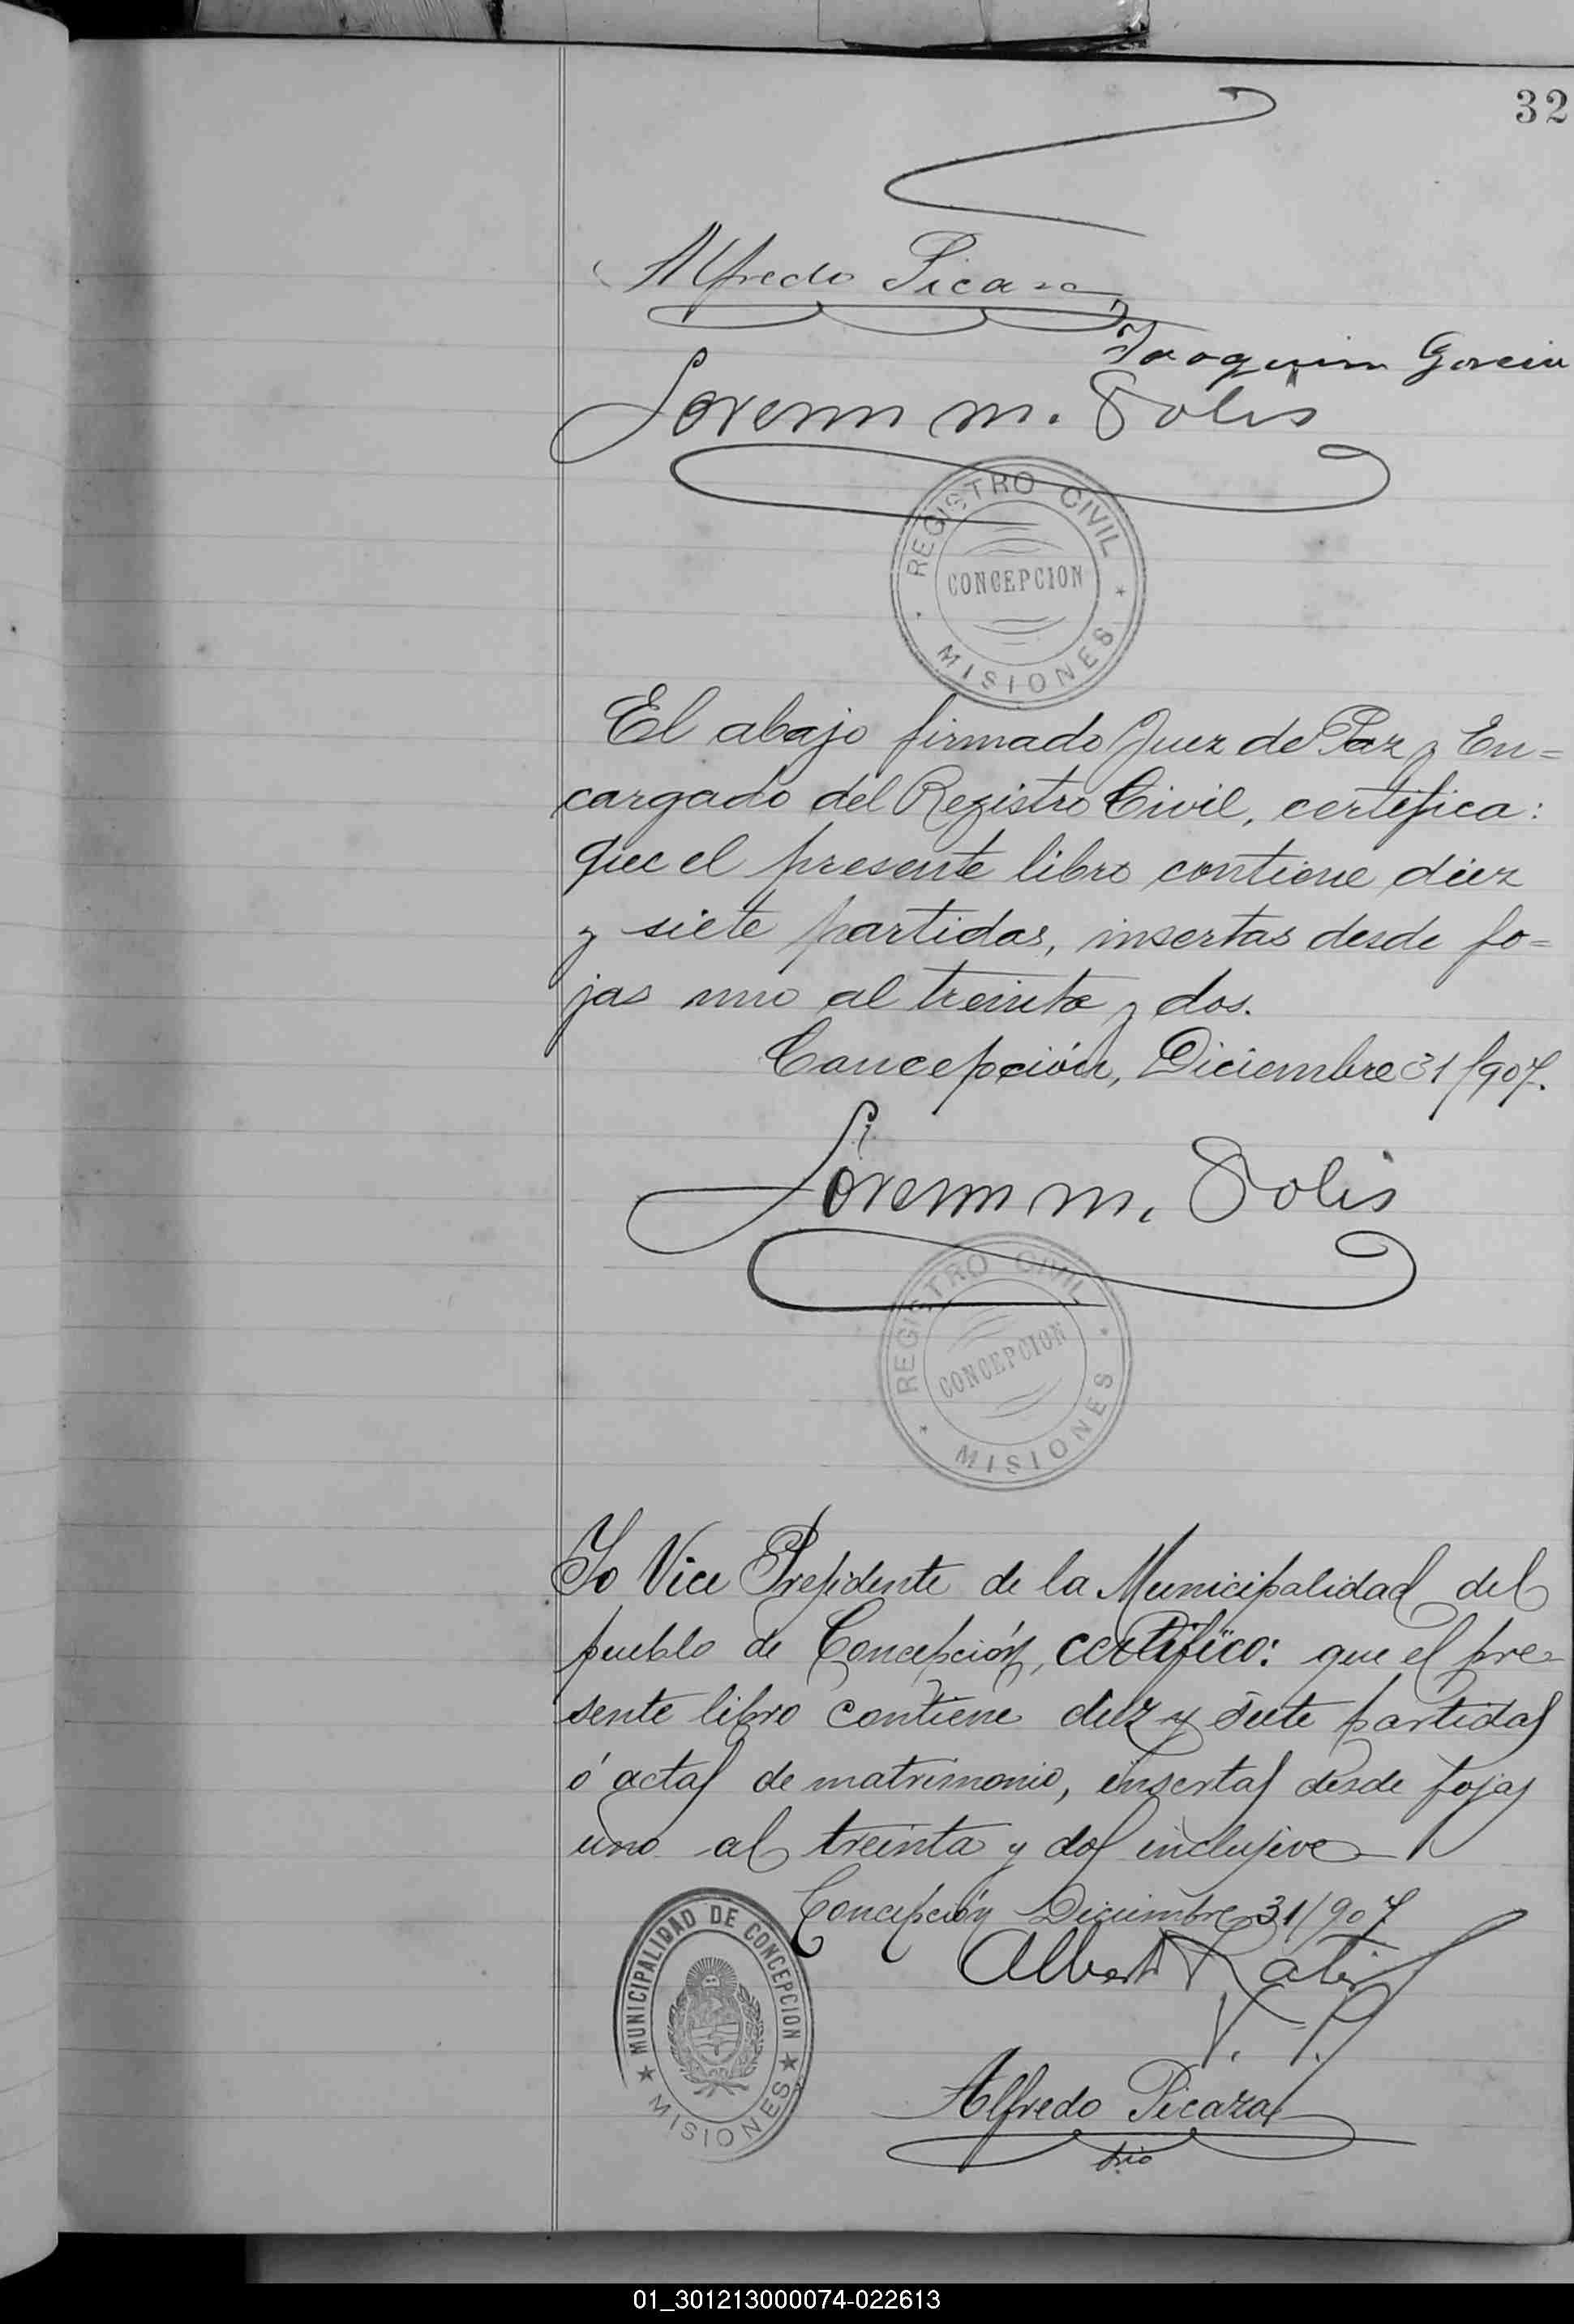 32
Alfredo Picaza
Joaquin Garcia
Lorenzo M. Solis
REGISTRO CIVIL
CONCEPCION
MISIONES
El abajo firmado Juez de Paz y En=
cargado del Registro Civil, certifica:
que el presente libro contiene diez
y siete partidas, insertas desde fo=
jas uno al treinta y dos.
Concepción, Diciembre 31/907.
Lorenzo M. Solis
REGISTRO CIVIL
CONCEPCION
MISIONES
Yo Vice Presidente de la Municipalidad del
pueblo de Concepción, certifico: que el pre=
sente libro contiene diez y siete partidas
ó actas de matrimonio, insertas desde fojas
uno al treinta y dos inclusive
Concepción Diciembre 31/907
MUNICIPALIDAD DE CONCEPCION
MISIONES
Alberto
V. P.
Alfredo Picaza
Srio
01_301213000074-022613